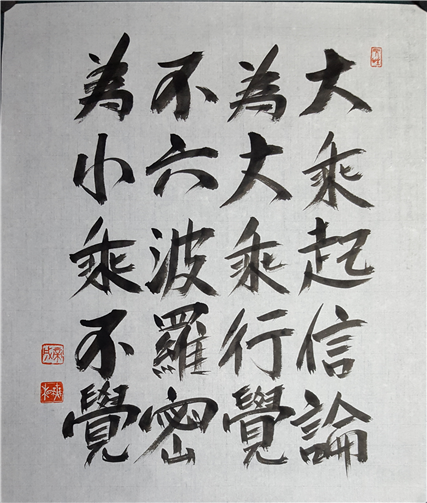 大乘起信論
為大乘行覺
不六波羅密
為小乘不覺